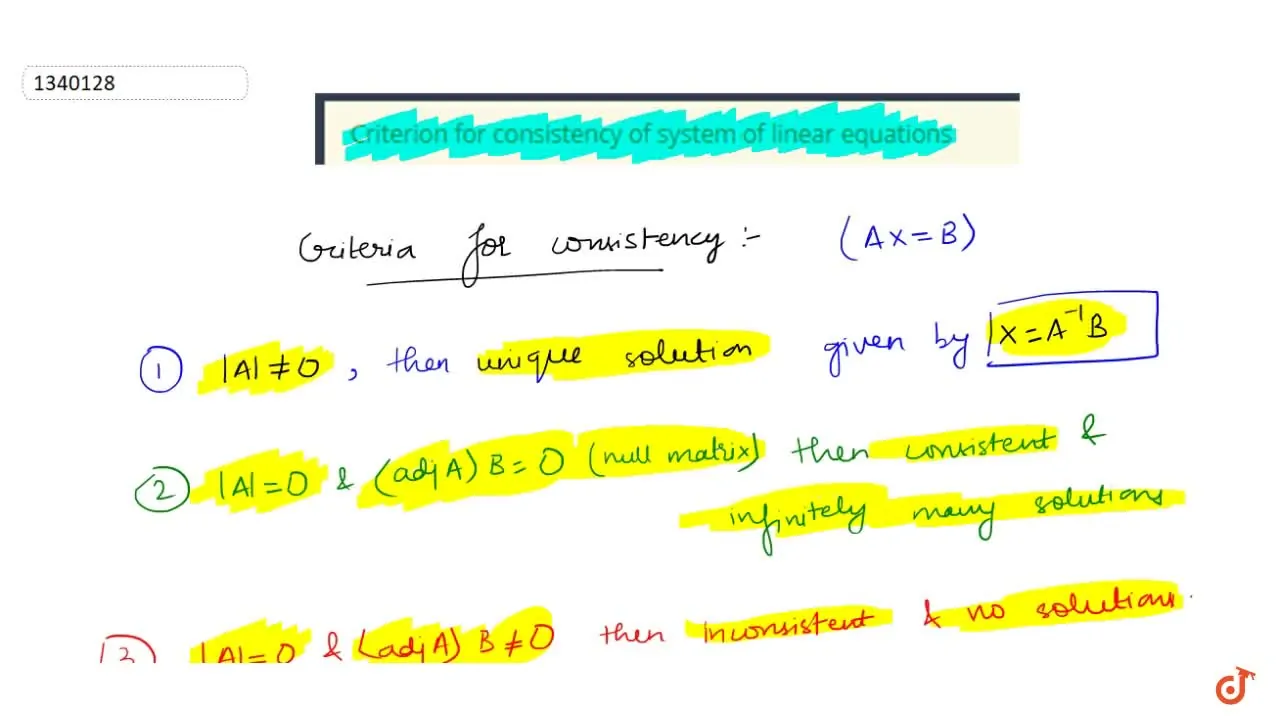 1340128
Criterion for consistency of system of linear equations
Criteria for consistency :- (AX=B)
① |A|≠0, then unique solution given by |X=A⁻¹B
② |A|=0 & (adj A) B=0 (null matrix) then consistent &
infinitely many solutions
③ |A|=0 & (adj A) B≠0 then inconsistent & no solutions.